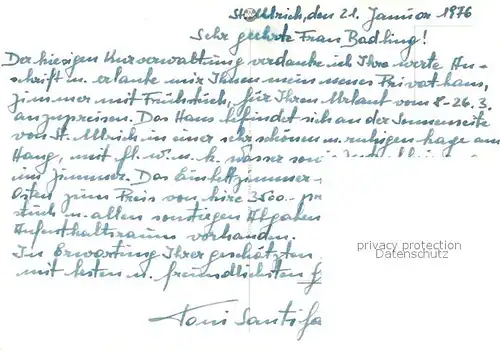 St. Ulrich, den 21. Januar 1976
Sehr geehrte Frau Badling!
Der hiesigen Kurverwaltung verdanke ich Ihre werte An-
schrift u. erlaube mir Ihnen mein neues Privathaus,
Zimmer mit Frühstück, für Ihren Urlaub vom 8-26.3.
anzupreisen. Das Haus befindet sich an der Sonnenseite
von St. Ulrich in einer sehr schönen u. ruhigen Lage am
Hang, mit fl. w. u. k. Wasser sow
im Zimmer. Das Einbettzimmer
kosten zum Preis von Lire 3500.- pr
stück u. allen sonstigen Abgaben
Aufenthaltsraum vorhanden.
In Erwartung Ihrer geschätzten
mit besten u. freundlichsten G
Toni Santifa
privacy protection
Datenschutz